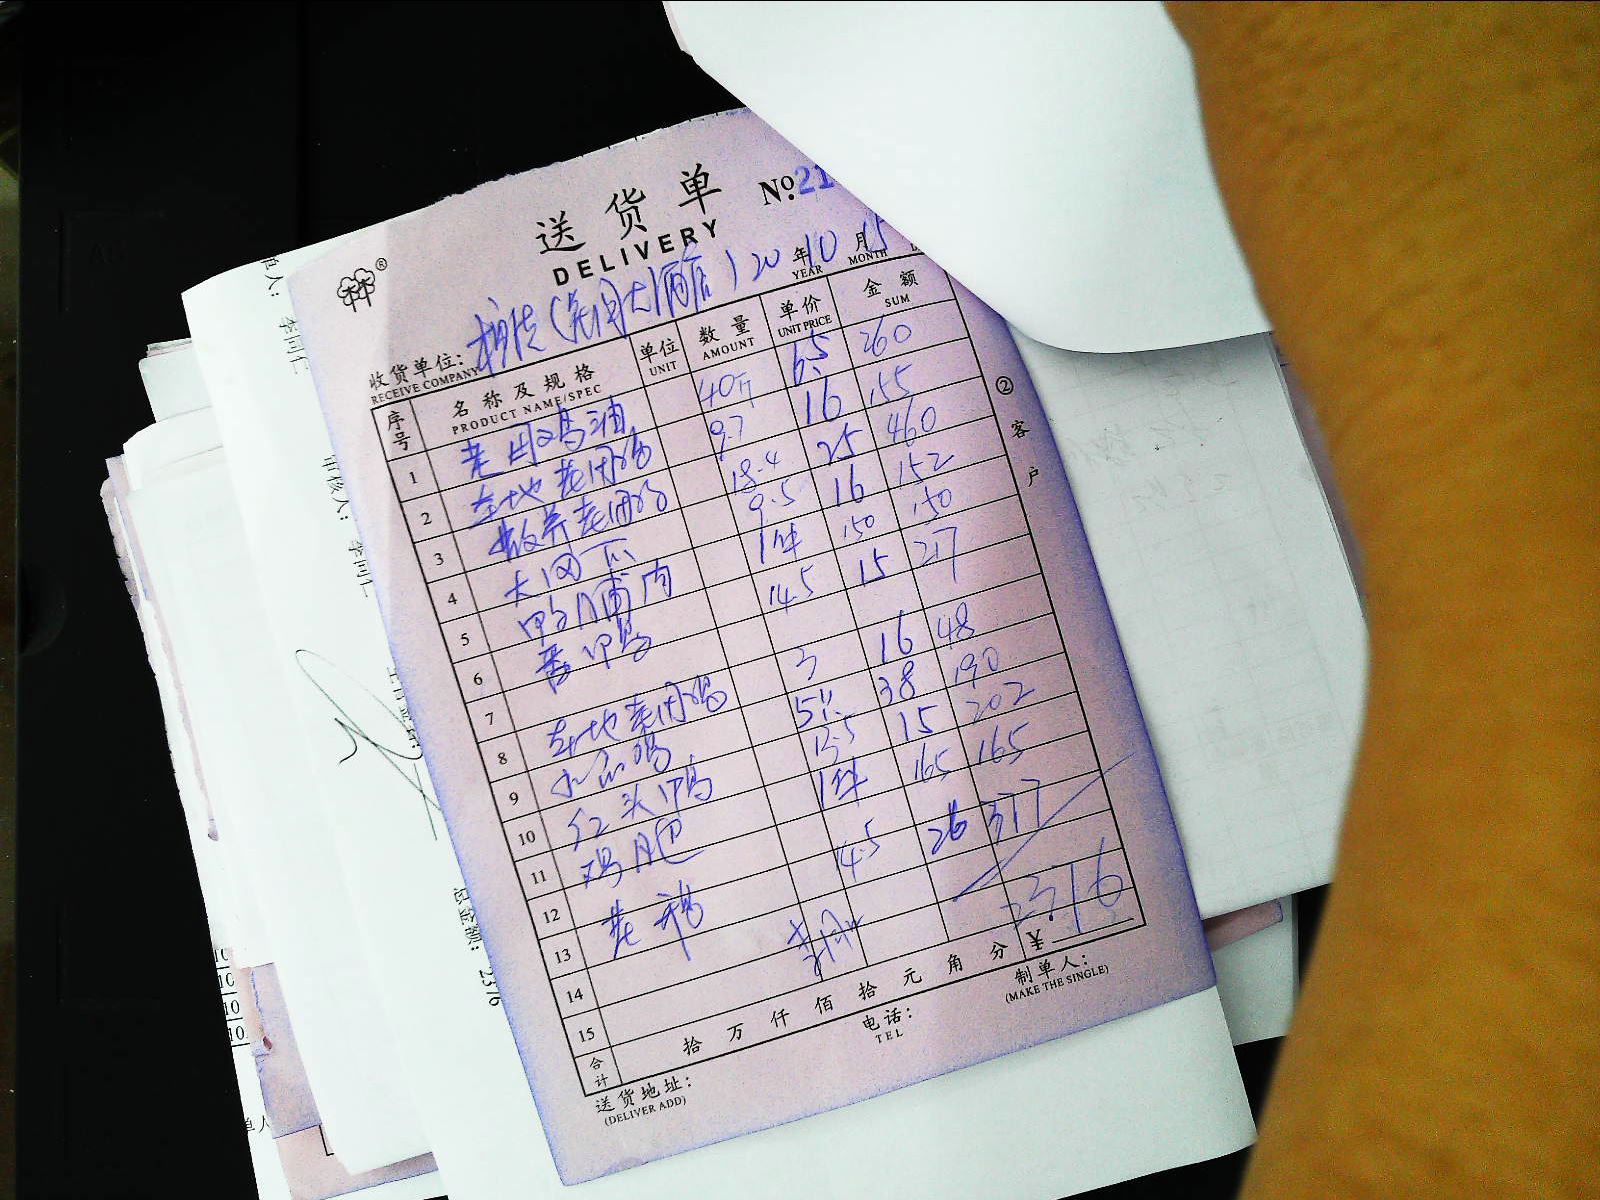 送货单
DELIVERY
No.21
20 年 10 月 15
YEAR MONTH
收货单位:
RECEIVE COMPANY
序号 名称及规格 单位 数量 单价 金额
PRODUCT NAME/SPEC UNIT AMOUNT UNIT PRICE SUM
1 老母鸡油 40斤 6.5 260
2 本地老母鸡 9.7 16 155
3 散养老母鸡 18.4 25 460
4 9.5 16 152
5 鸭脯肉 1件 150 150
6 番鸭 14.5 15 217
7
8 本地老母鸡 3 16 48
9 38 190
10 红头鸭 13.5 15 202
11 鸡肥 1件 165 165
12
13 老鹅 14.5 26 377
14
15
合计 拾 万 仟 佰 拾 元 角 分 ¥ 2376
送货地址:
(DELIVER ADD)
电话:
TEL
制单人:
(MAKE THE SINGLE)
②客户
审核人:
总金额: 2376